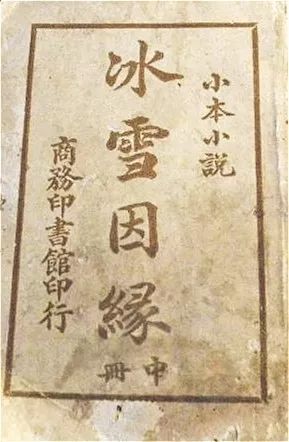 小本小說
冰雪因緣
中冊
商務印書館印行